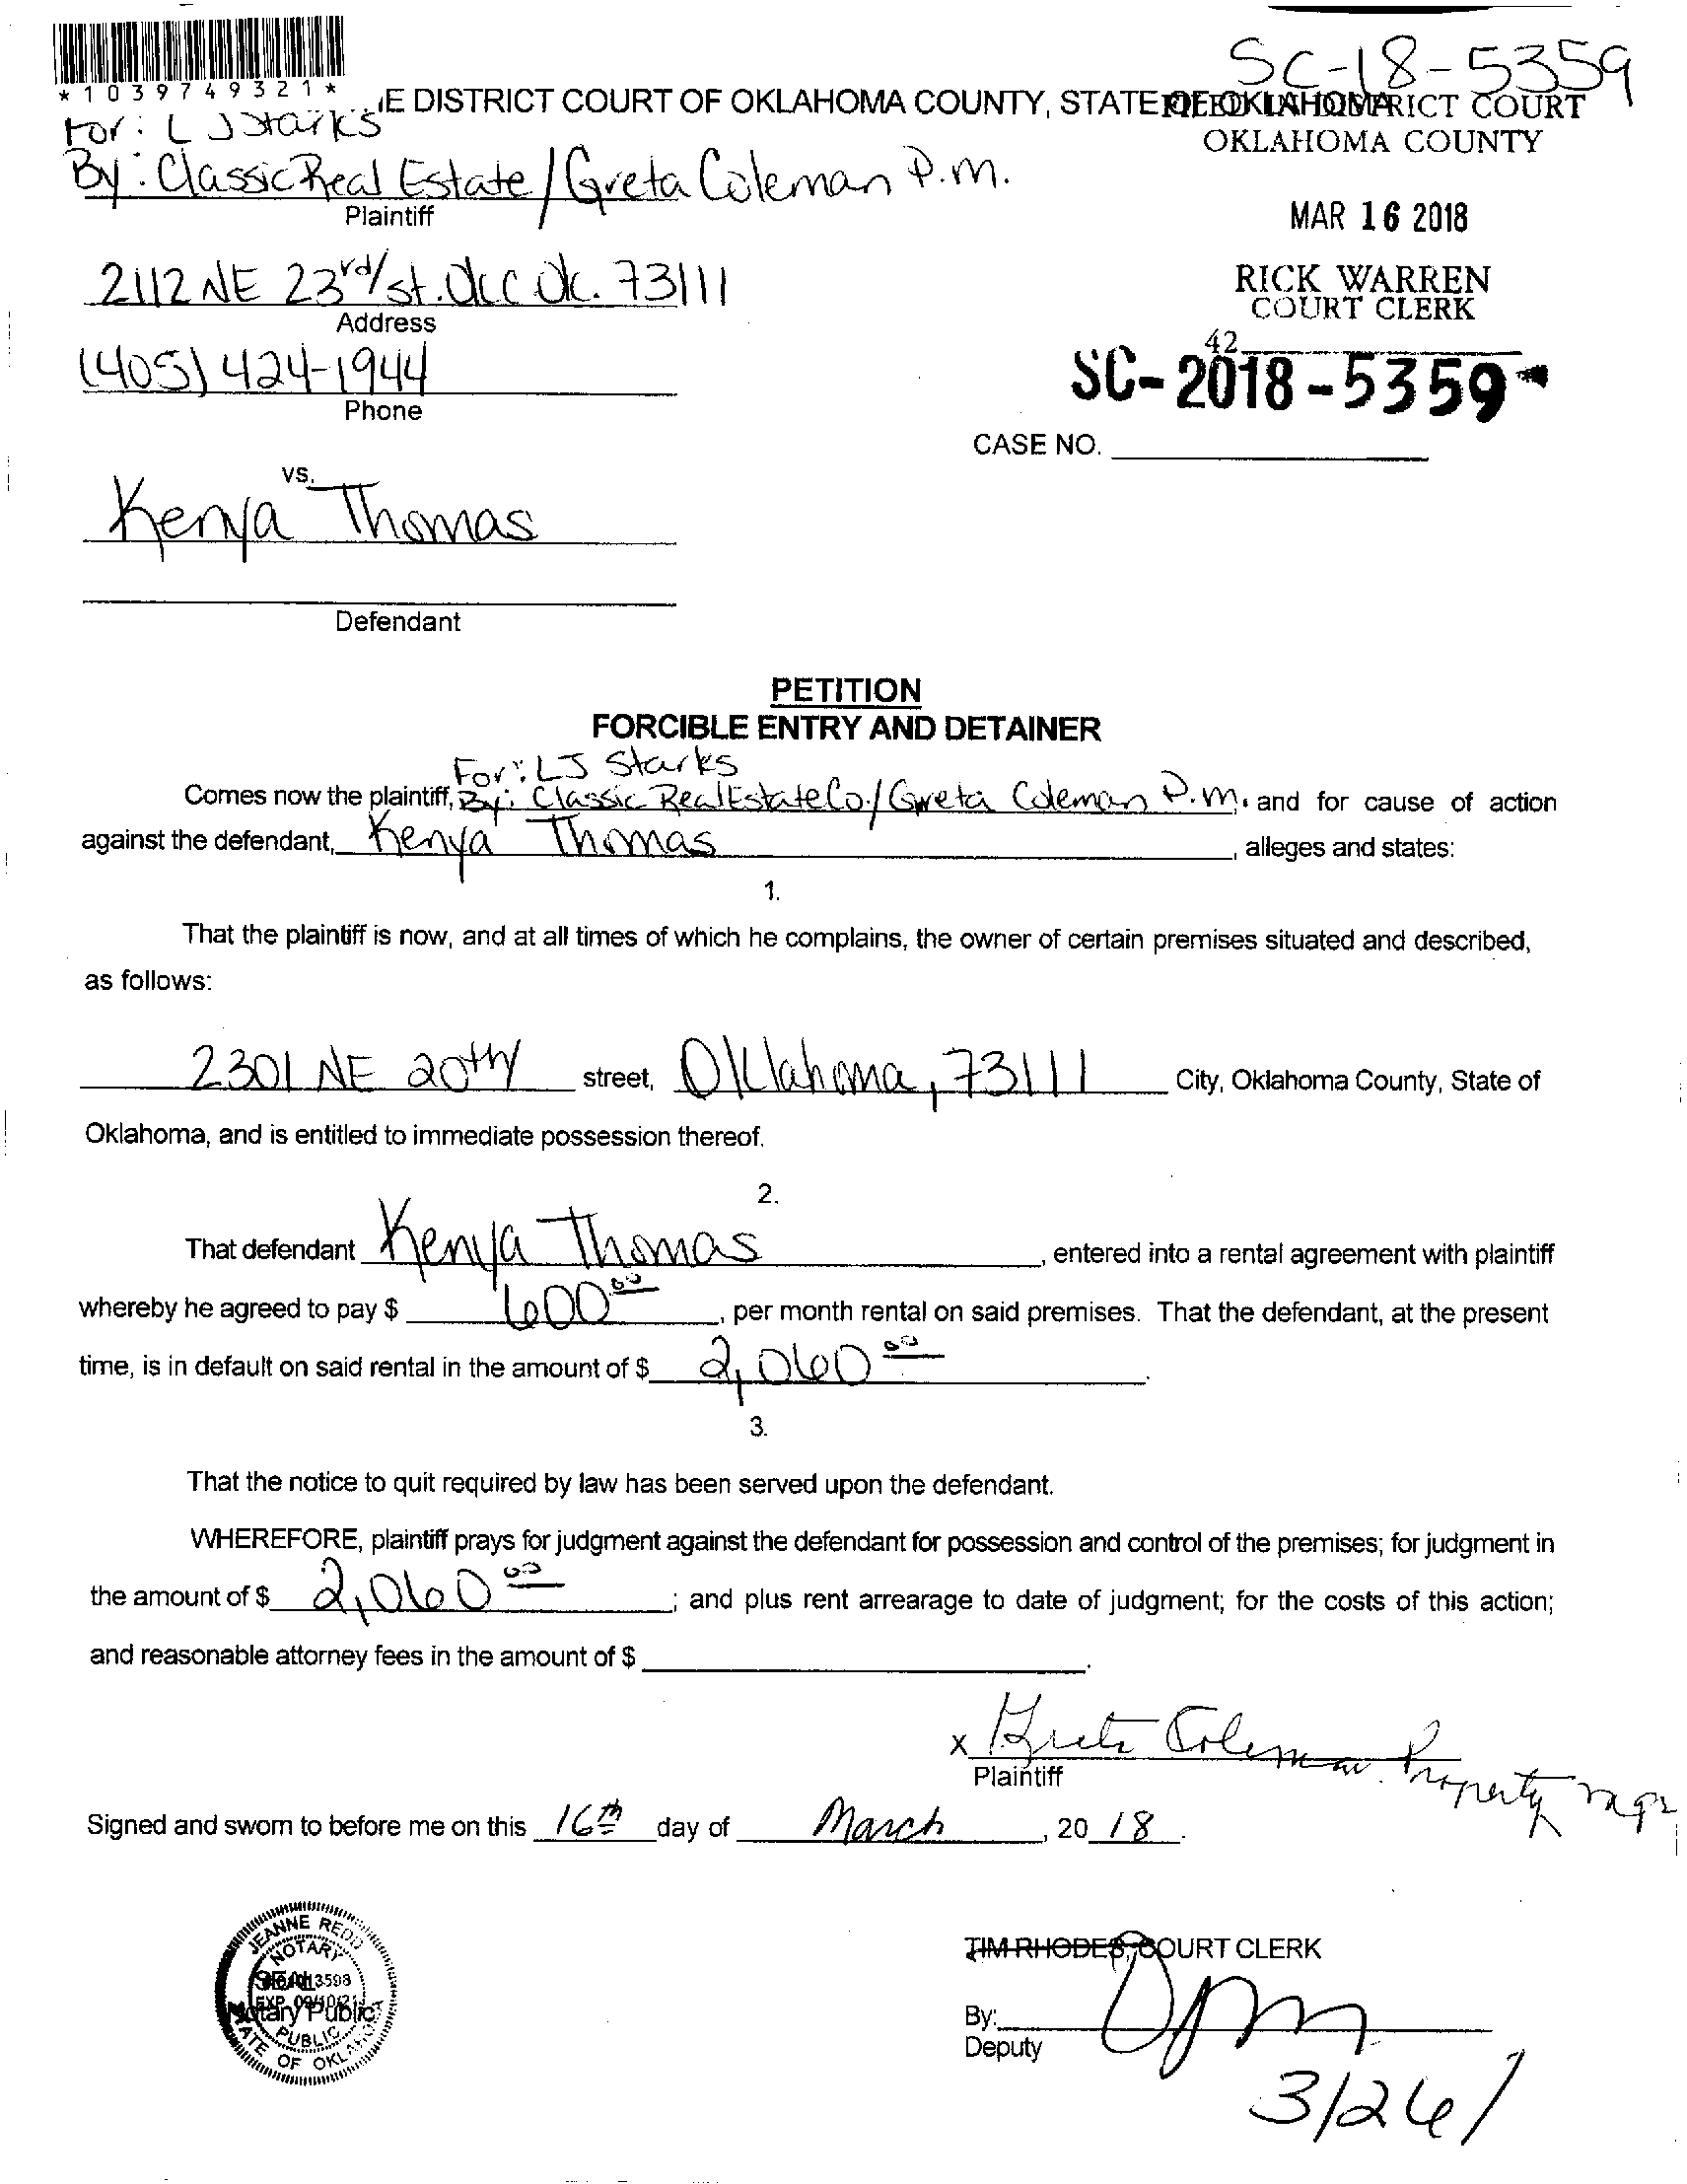 SC-18-5359
*1039749321*
IE DISTRICT COURT OF OKLAHOMA COUNTY, STATE OF OKLAHOMA
FILED IN DISTRICT COURT
OKLAHOMA COUNTY
For: L J Starks
By: Classic Real Estate / Greta Coleman P.M.
Plaintiff
MAR 16 2018
2112 NE 23rd/st. OKC OK. 73111
Address
RICK WARREN
COURT CLERK
42
(405) 424-1944
Phone
SC-2018-5359
CASE NO.
vs.
Kenya Thomas
Defendant
PETITION
FORCIBLE ENTRY AND DETAINER
For: LJ Starks
Comes now the plaintiff, By: Classic Real Estate Co. / Greta Coleman P.M. and for cause of action
against the defendant, Kenya Thomas, alleges and states:
1.
That the plaintiff is now, and at all times of which he complains, the owner of certain premises situated and described,
as follows:
2301 NE 20th street, Oklahoma, 73111 City, Oklahoma County, State of
Oklahoma, and is entitled to immediate possession thereof.
2.
That defendant Kenya Thomas, entered into a rental agreement with plaintiff
whereby he agreed to pay $ 600 00, per month rental on said premises. That the defendant, at the present
time, is in default on said rental in the amount of $ 2,060 00.
3.
That the notice to quit required by law has been served upon the defendant.
WHEREFORE, plaintiff prays for judgment against the defendant for possession and control of the premises; for judgment in
the amount of $ 2,060 00; and plus rent arrearage to date of judgment; for the costs of this action;
and reasonable attorney fees in the amount of $ .
x Greta Coleman Property mgr
Plaintiff
Signed and sworn to before me on this 16th day of March, 20 18.
JEANNE REDD
NOTARY
SEAL
Notary Public
PUBLIC
STATE OF OKLAHOMA
TIM RHODES, COURT CLERK
By:
Deputy
3/26/